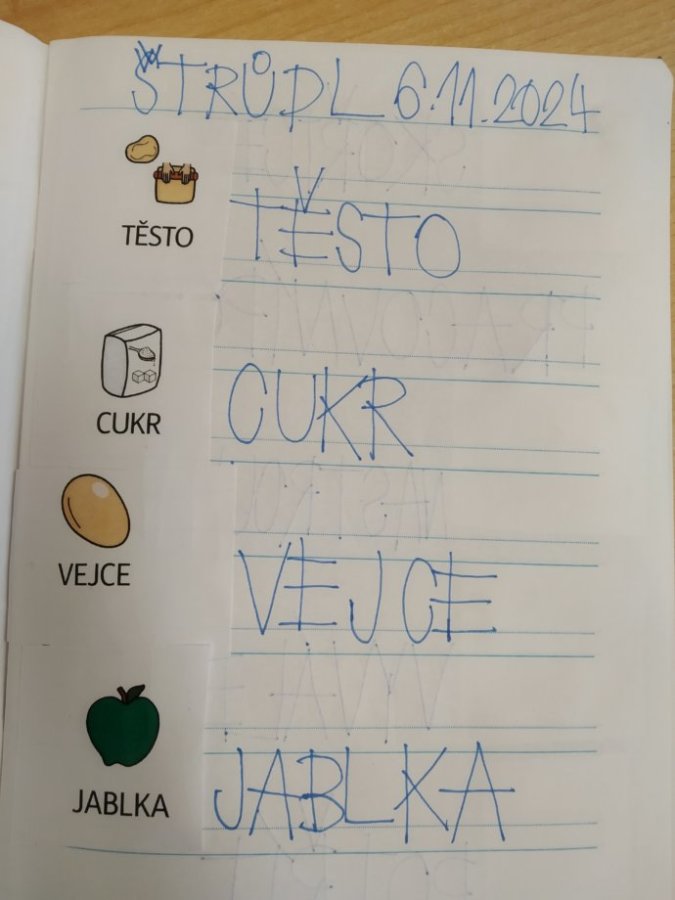 ŠTRŮDL 6.11.2024
TĚSTO TĚSTO
CUKR CUKR
VEJCE VEJCE
JABLKA JABLKA